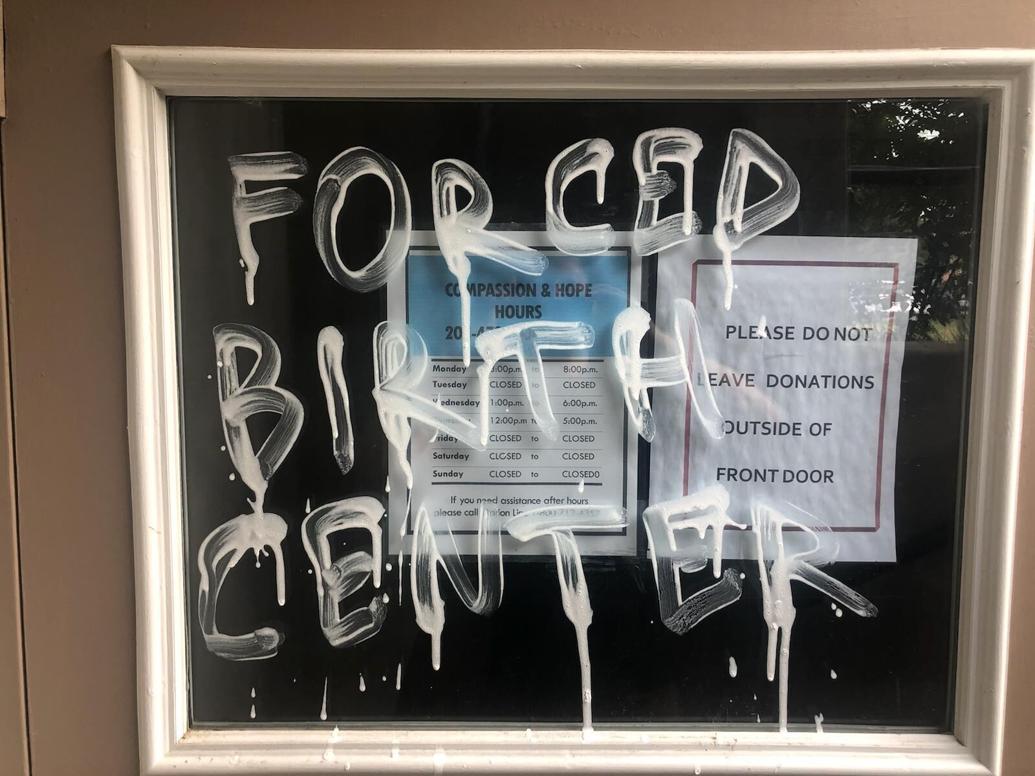 FORCED
BIRTH
CENTER
COMPASSION & HOPE
HOURS
Monday to 8:00p.m.
Tuesday CLOSED to CLOSED
Wednesday 1:00p.m. to 6:00p.m.
12:00p.m to 5:00p.m.
Friday CLOSED to CLOSED
Saturday CLOSED to CLOSED
Sunday CLOSED to CLOSED0
If you need assistance after hours
please call
PLEASE DO NOT
LEAVE DONATIONS
OUTSIDE OF
FRONT DOOR